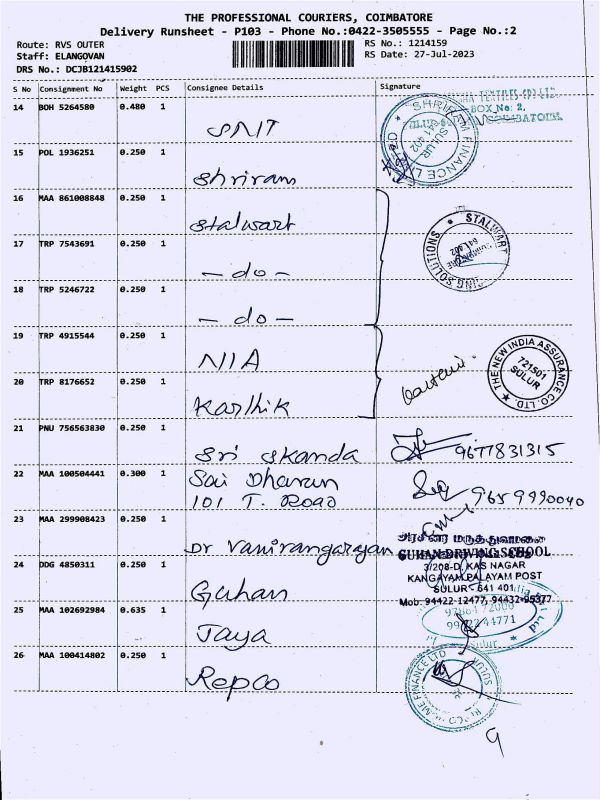 THE PROFESSIONAL COURIERS, COIMBATORE
Delivery Runsheet - P103 - Phone No.:0422-3505555 - Page No.:2
Route: RVS OUTER
Staff: ELANGOVAN
DRS No.: DCJB121415902
RS No.: 1214159
RS Date: 27-Jul-2023
S No Consignment No Weight PCS Consignee Details Signature
14 BOH 5264580 0.480 1 SNIT
BOX No: 2,
COIMBATORE
SHRIRAM FINANCE
SULUR
641 402
15 POL 1936251 0.250 1 Shriram
16 MAA 861008848 0.250 1 Stalwart
STALWART
SOLUTIONS
641 402
17 TRP 7543691 0.250 1 - do -
18 TRP 5246722 0.250 1 - do -
19 TRP 4915544 0.250 1 NIA
THE NEW INDIA ASSURANCE CO. LTD.
721501
SULUR
20 TRP 8176652 0.250 1 Karthik
21 PNU 756563830 0.250 1 Sri Skanda 9677831315
22 MAA 100504441 0.300 1 Sai Dharun
101 T. Road
9659990040
23 MAA 299908423 0.250 1 Dr Vanirangarajan
24 DDG 4850311 0.250 1 Guhan
GUHAN DRIVING SCHOOL
3/208-D, KAS NAGAR
KANGAYAM PALAYAM POST
SULUR - 641 401
Mob: 94422-12477, 94432-95377
25 MAA 102692984 0.635 1 Jaya
Ltd
26 MAA 100414802 0.250 1 Repco
FINANCE LTD
9